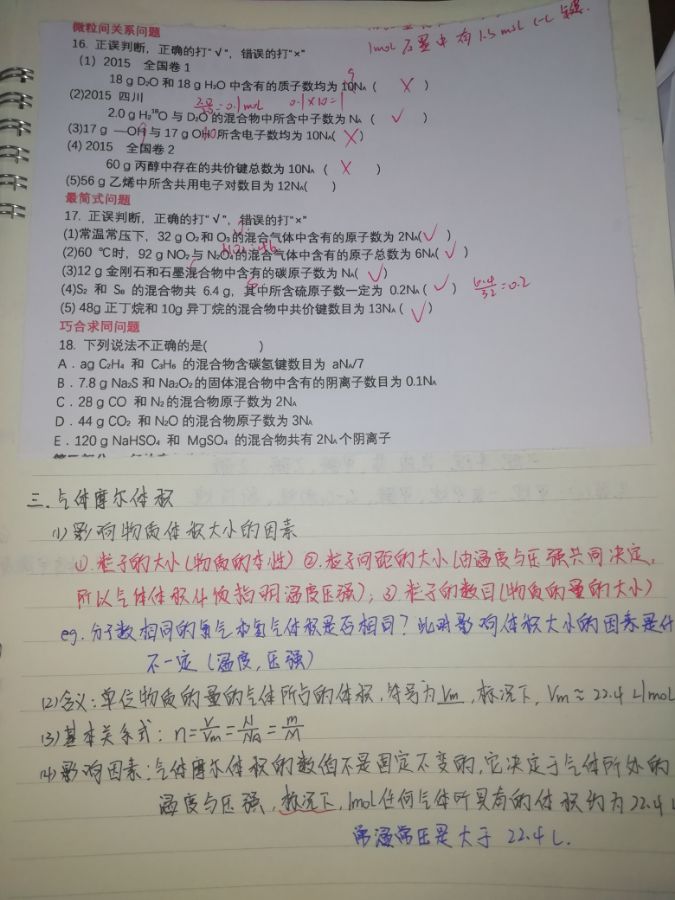 微粒间关系问题
1mol 石墨中有1.5mol C-C 键.
16. 正误判断，正确的打"√"，错误的打"×"
(1) 2015 全国卷 1
18 g D₂O 和 18 g H₂O 中含有的质子数均为 10Nᴀ ( X )
(2)2015 四川 2.0/20=0.1mol 0.1×10=1
2.0 g H₂¹⁸O 与 D₂O 的混合物中所含中子数为 Nᴀ ( √ )
(3)17 g —OH 与 17 g OH 所含电子数均为 10Nᴀ( X )
(4) 2015 全国卷 2
60 g 丙醇中存在的共价键总数为 10Nᴀ ( X )
(5)56 g 乙烯中所含共用电子对数目为 12Nᴀ( )
最简式问题
17. 正误判断，正确的打"√"，错误的打"×"
(1)常温常压下，32 g O₂ 和 O₃ 的混合气体中含有的原子数为 2Nᴀ( √ )
(2)60 ℃时，92 g NO₂ 与 N₂O₄ 的混合气体中含有的原子总数为 6Nᴀ( √ )
(3)12 g 金刚石和石墨混合物中含有的碳原子数为 Nᴀ( √ )
(4)S₂ 和 S₈ 的混合物共 6.4 g，其中所含硫原子数一定为 0.2Nᴀ ( √ ) 6.4/32=0.2
(5) 48g 正丁烷和 10g 异丁烷的混合物中共价键数目为 13Nᴀ ( √ )
巧合求同问题
18. 下列说法不正确的是( )
A．ag C₂H₄ 和 C₃H₆ 的混合物含碳氢键数目为 aNᴀ/7
B．7.8 g Na₂S 和 Na₂O₂ 的固体混合物中含有的阴离子数目为 0.1Nᴀ
C．28 g CO 和 N₂ 的混合物原子数为 2Nᴀ
D．44 g CO₂ 和 N₂O 的混合物原子数为 3Nᴀ
E．120 g NaHSO₄ 和 MgSO₄ 的混合物共有 2Nᴀ 个阴离子
三. 气体摩尔体积
(1)影响物质体积大小的因素
①. 粒子的大小(物质的本性) ②. 粒子间距的大小(由温度与压强共同决定,
所以气体体积必须指明温度压强); ③ 粒子的数目(物质的量的大小)
eg. 分子数相同的氧气和氢气体积是否相同? 此时影响体积大小的因素是什
不一定 (温度, 压强)
(2)含义: 单位物质的量的气体所占的体积, 符号为Vm, 标况下, Vm≈22.4 L/mol
(3)基本关系式: n=V/Vm=N/NA=m/M
(4)影响因素: 气体摩尔体积的数值不是固定不变的, 它决定于气体所处的
温度与压强, 标况下, 1mol任何气体所具有的体积约为22.4 L
常温常压是大于 22.4 L.